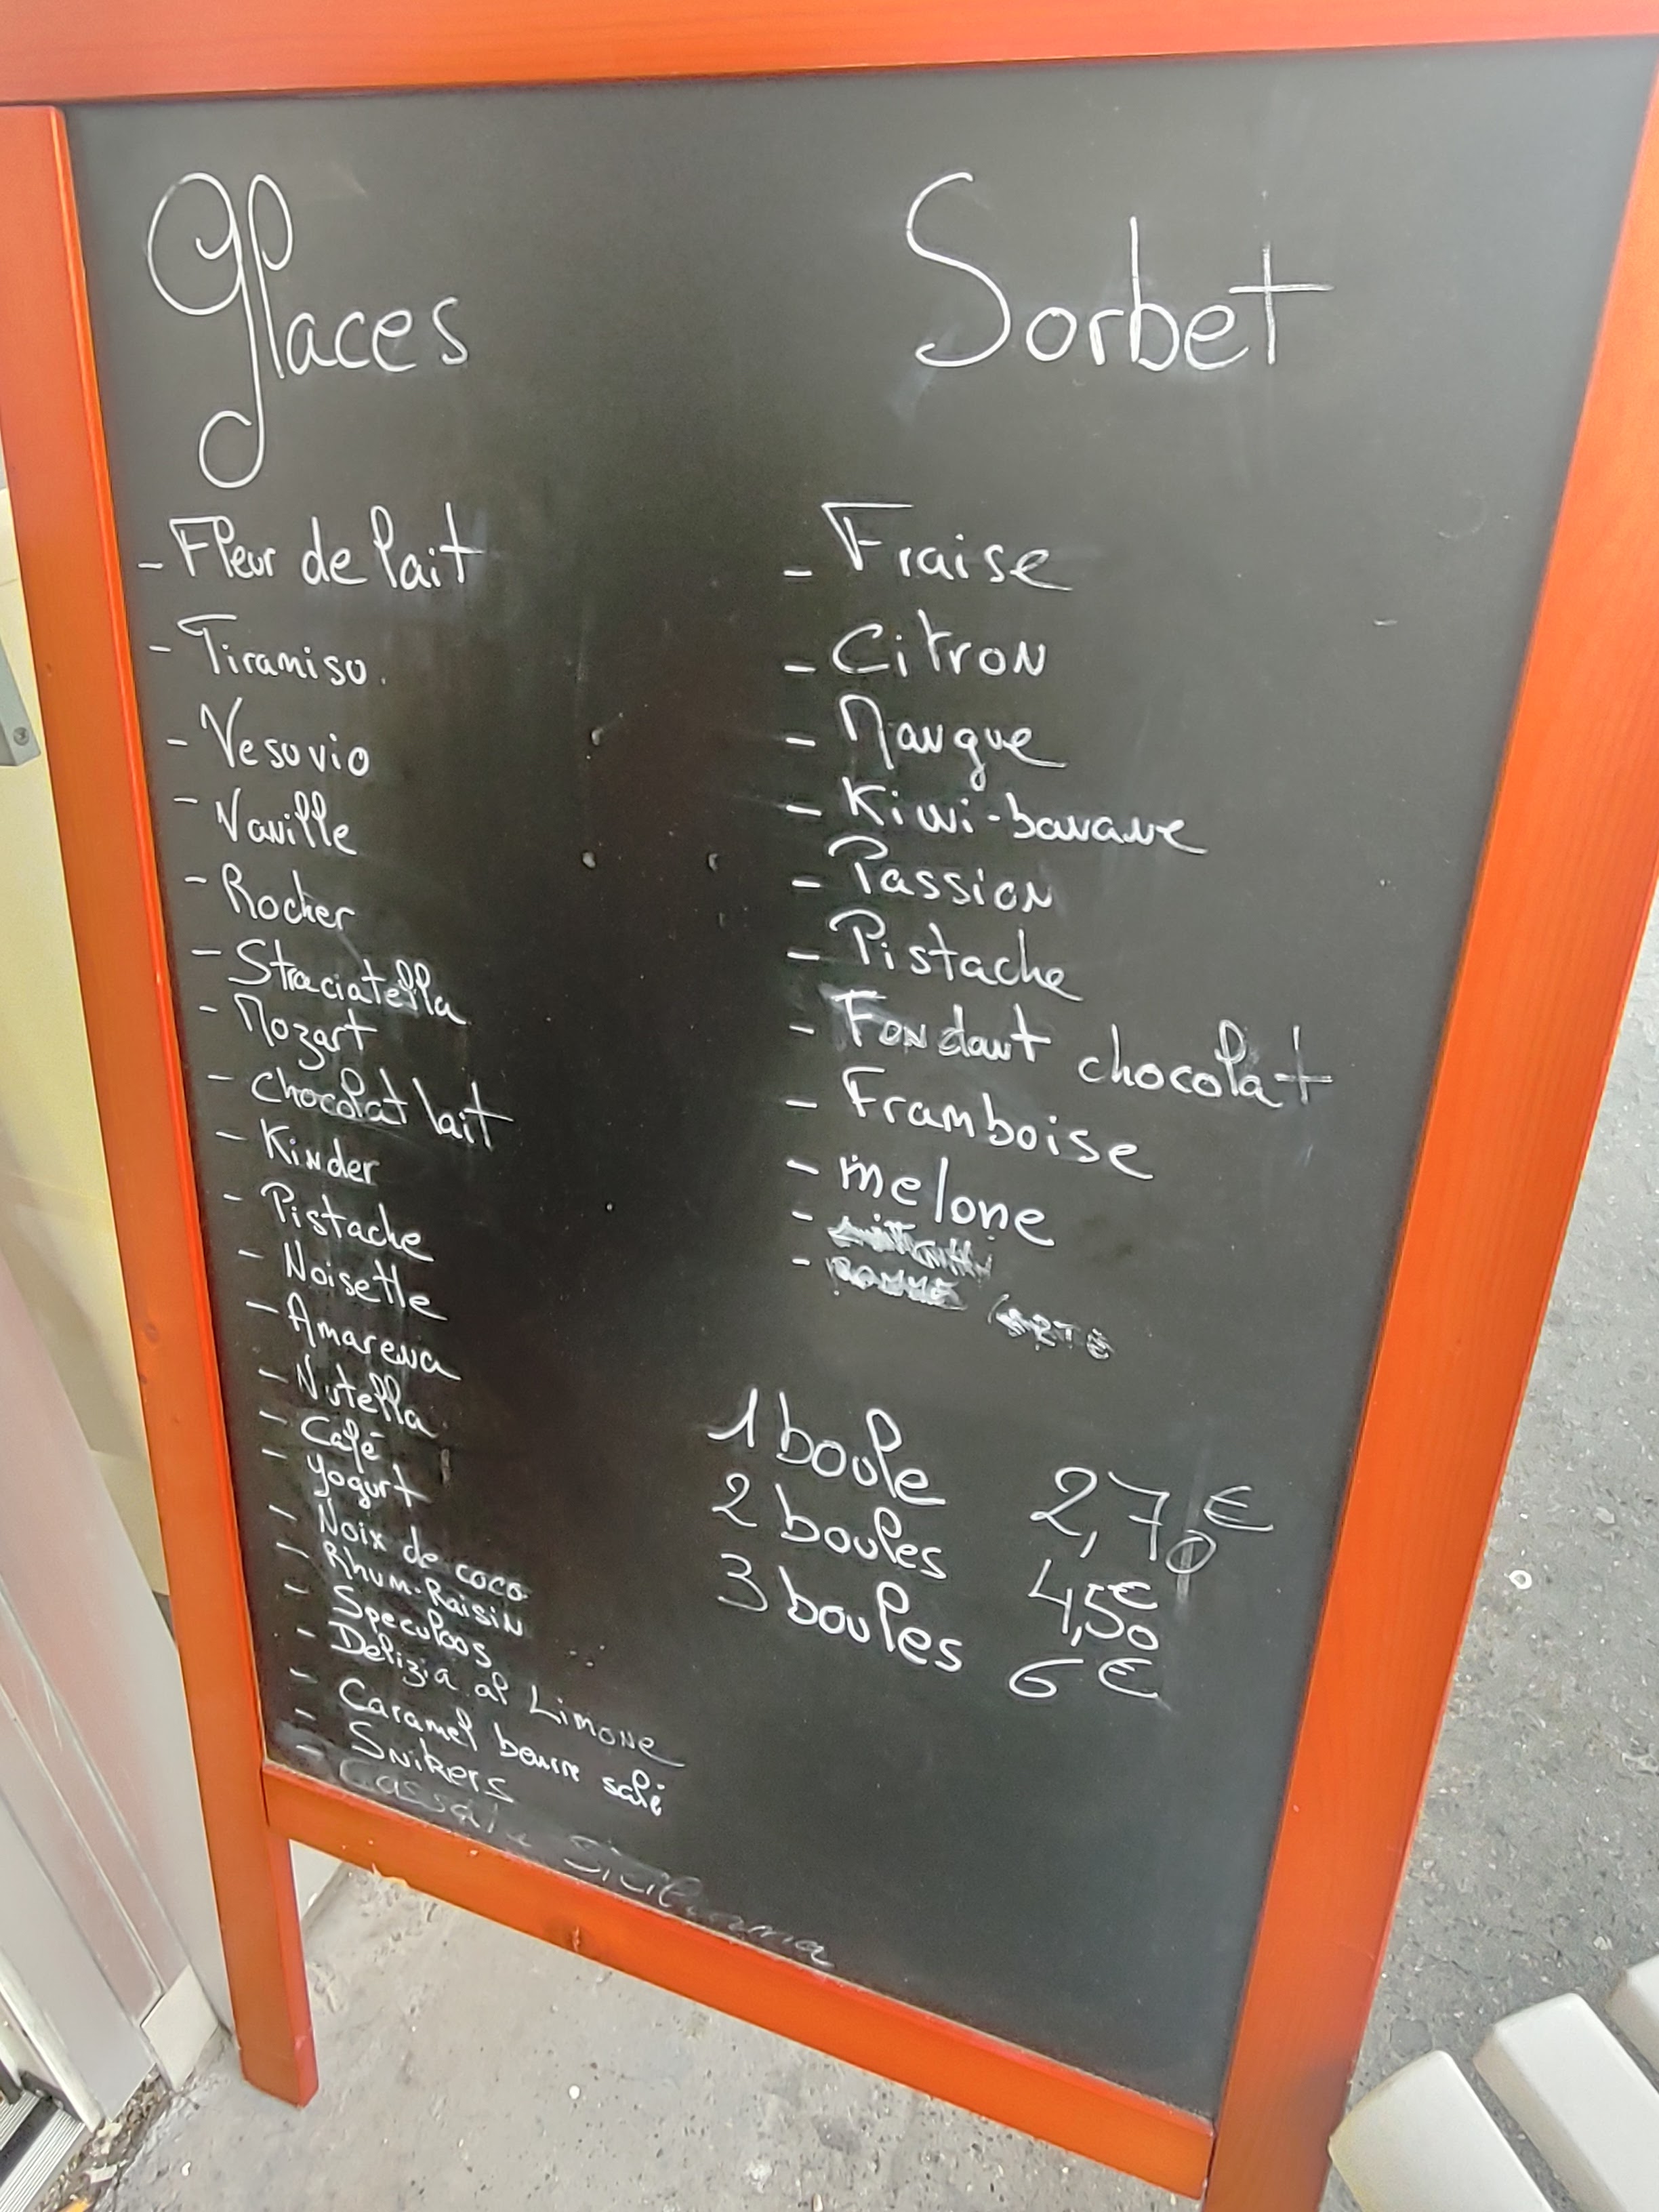 Glaces
- Fleur de lait
- Tiramisu
- Vesuvio
- Vanille
- Rocher
- Straciatella
- Mozart
- Chocolat lait
- Kinder
- Pistache
- Noisette
- Amarena
- Nutella
- Café
- Yogurt
- Noix de coco
- Rhum-Raisin
- Speculoos
- Delizia al Limone
- Caramel beurre salé
- Snikers
- Cassata Siciliana
Sorbet
- Fraise
- Citron
- Mangue
- Kiwi-banane
- Passion
- Pistache
- Fondant chocolat
- Framboise
- melone
1 boule 2,70€
2 boules 4,50€
3 boules 6€